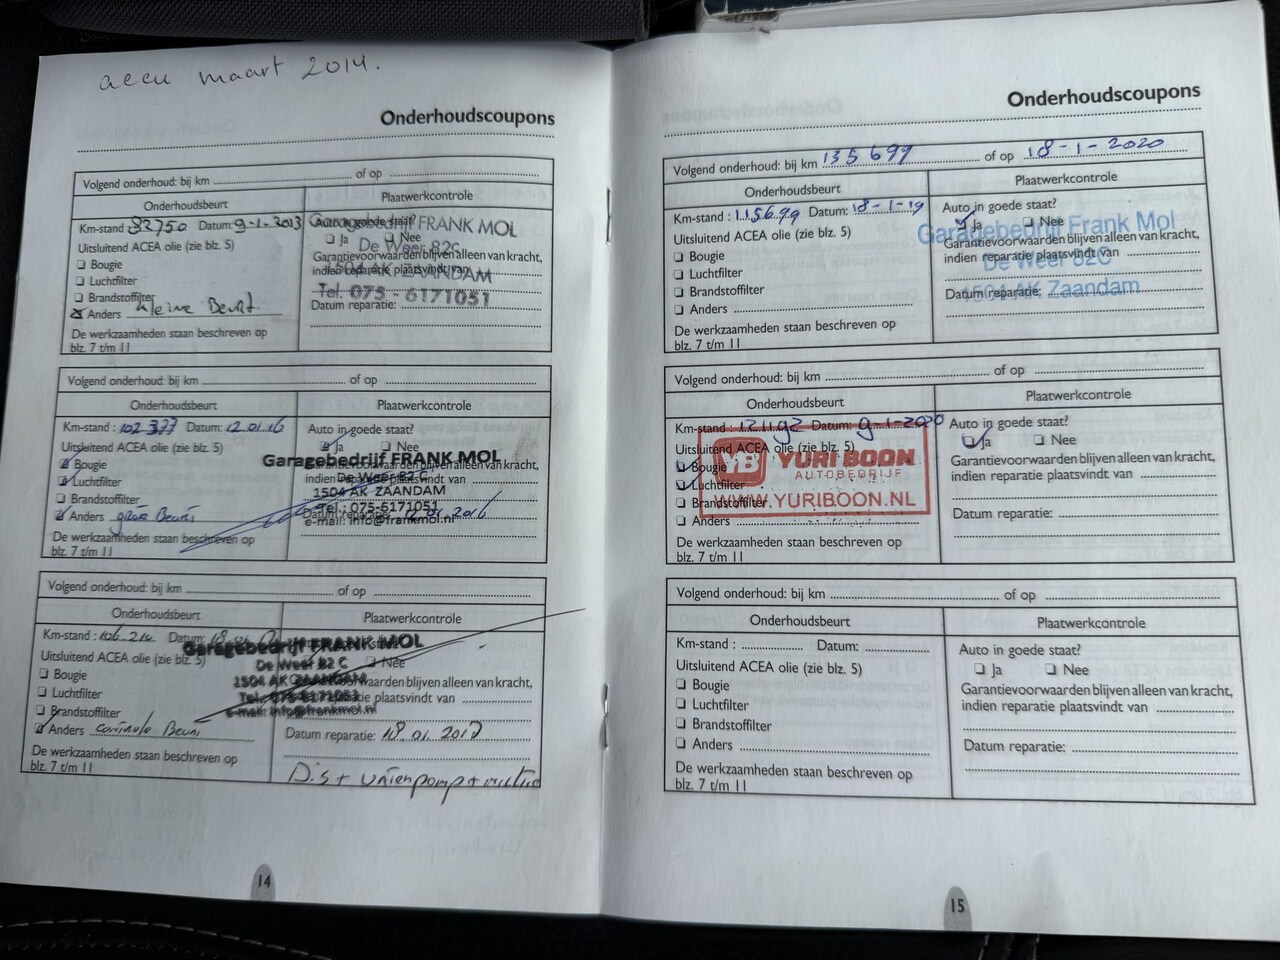 accu maart 2014.
Onderhoudscoupons
Volgend onderhoud: bij km of op
Onderhoudsbeurt Plaatwerkcontrole
Km-stand 82750 Datum: 9-1-2013 Auto in goede staat?
Garagebedrijf FRANK MOL
Uitsluitend ACEA olie (zie blz. 5) Ja Nee
De Weer 82c
Bougie Garantievoorwaarden blijven alleen van kracht,
Luchtfilter indien reparatie plaatsvindt van
1504 AK ZAANDAM
Brandstoffilter Tel. 075 - 6171051
Anders Kleine Beurt. Datum reparatie:
De werkzaamheden staan beschreven op
blz. 7 t/m 11
Volgend onderhoud: bij km of op
Onderhoudsbeurt Plaatwerkcontrole
Km-stand : 102 377 Datum: 12.01.16 Auto in goede staat?
Uitsluitend ACEA olie (zie blz. 5) Ja Nee
Garagebedrijf FRANK MOL
Bougie Garantievoorwaarden blijven alleen van kracht,
Luchtfilter indien reparatie plaatsvindt van
De Weer 82 C
1504 AK ZAANDAM
Brandstoffilter Tel.: 075-6171051
Anders Beurt Datum reparatie: 12.01.2016
e-mail: info@frankmol.nl
De werkzaamheden staan beschreven op
blz. 7 t/m 11
Volgend onderhoud: bij km of op
Onderhoudsbeurt Plaatwerkcontrole
Km-stand : 106 214 Datum:
Garagebedrijf FRANK MOL
Uitsluitend ACEA olie (zie blz. 5) Nee
De Weer 82 C
Bougie 1504 AK ZAANDAM
Garantievoorwaarden blijven alleen van kracht,
Luchtfilter Tel.: 075-6171051
indien reparatie plaatsvindt van
Brandstoffilter e-mail: info@frankmol.nl
Anders Beurt Datum reparatie: 18.01.2017
De werkzaamheden staan beschreven op
blz. 7 t/m 11
Dis +
14
Onderhoudscoupons
Volgend onderhoud: bij km 135 699 of op 18-1-2020
Onderhoudsbeurt Plaatwerkcontrole
Km-stand : 115699 Datum: 18-1-19 Auto in goede staat?
Uitsluitend ACEA olie (zie blz. 5) Ja Nee
Garagebedrijf Frank Mol
Bougie Garantievoorwaarden blijven alleen van kracht,
Luchtfilter indien reparatie plaatsvindt van
De Weer 82C
Brandstoffilter Datum reparatie:
1504 AK Zaandam
Anders
De werkzaamheden staan beschreven op
blz. 7 t/m 11
Volgend onderhoud: bij km of op
Onderhoudsbeurt Plaatwerkcontrole
Km-stand : 121192 Datum: 9-1-2020 Auto in goede staat?
Uitsluitend ACEA olie (zie blz. 5) Ja Nee
YB YURI BOON
Bougie Garantievoorwaarden blijven alleen van kracht,
AUTOBEDRIJF
Luchtfilter indien reparatie plaatsvindt van
WWW.YURIBOON.NL
Brandstoffilter Datum reparatie:
Anders
De werkzaamheden staan beschreven op
blz. 7 t/m 11
Volgend onderhoud: bij km of op
Onderhoudsbeurt Plaatwerkcontrole
Km-stand : Datum: Auto in goede staat?
Uitsluitend ACEA olie (zie blz. 5) Ja Nee
Bougie Garantievoorwaarden blijven alleen van kracht,
Luchtfilter indien reparatie plaatsvindt van
Brandstoffilter
Anders Datum reparatie:
De werkzaamheden staan beschreven op
blz. 7 t/m 11
15